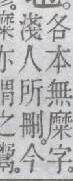 各本無糜字
淺人所刪今
糜亦謂之鬻